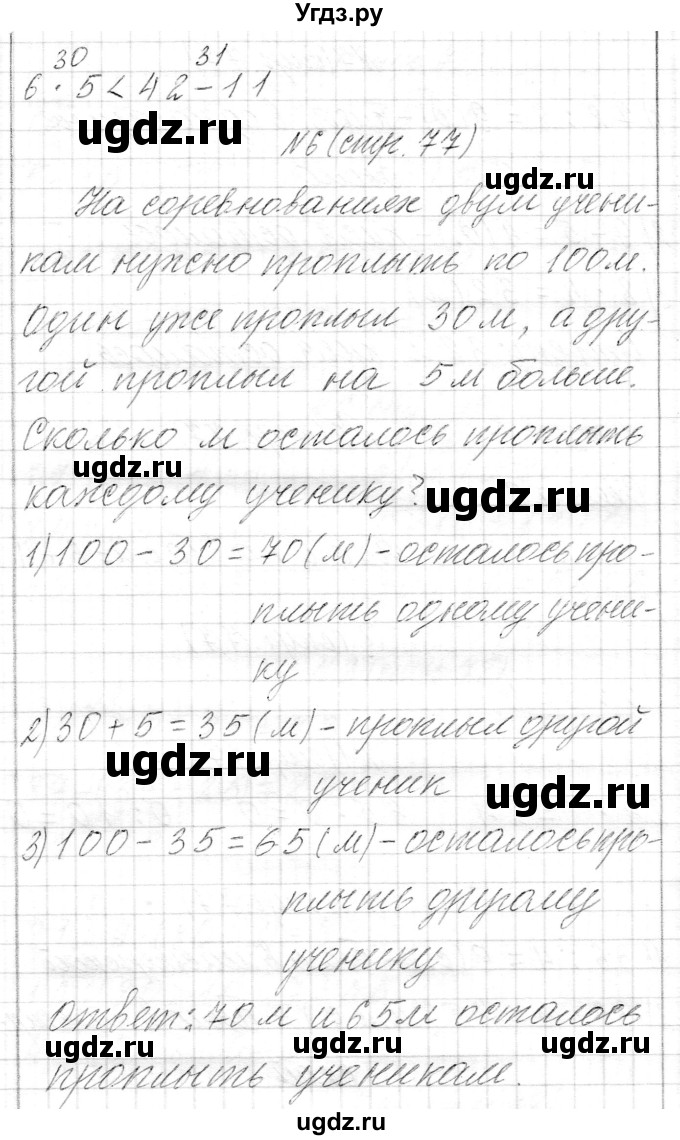 Угдз.ру
30 31
6 · 5 < 42 - 11
ugdz.ru
№6 (стр. 77)
ugdz.ru
На соревнованиях двум учени-
кам нужно проплыть по 100м.
Один уже проплыл 30м, а дру-
гой проплыл на 5м больше.
Сколько м осталось проплыть
ugdz.ru
каждому ученику?
ugdz.ru
1) 100 - 30 = 70 (м) - осталось про-
плыть одному учени-
ку
2) 30 + 5 = 35 (м) - проплыл другой
ugdz.ru
ученик
ugdz.ru
3) 100 - 35 = 65 (м) - осталось про-
плыть другому
ученику
Ответ: 70м и 65м осталось
ugdz.ru ugdz.ru ugdz.ru
проплыть ученикам.
ugdz.ru